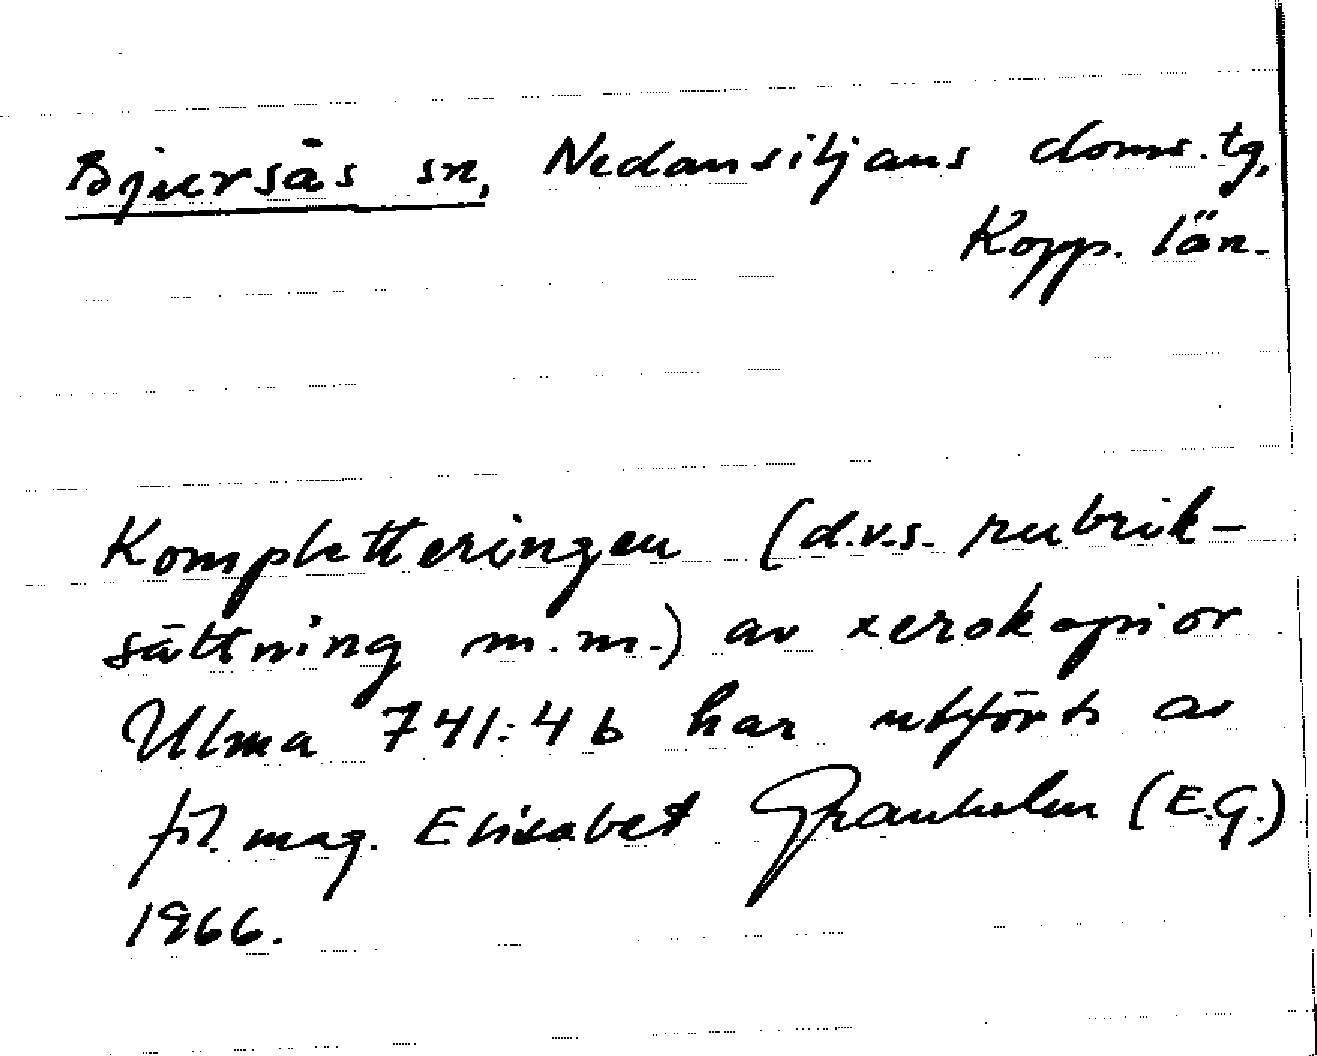 Bjursås sn, Nedansiljans doms. tg,
Kopp. län.
Kompletteringen (d.v.s. rubrik-
sättning m.m.) av xerokopior
Ulma 741:4 b har utförts av
fil. mag. Elisabet Granholm (E.G.)
1966.